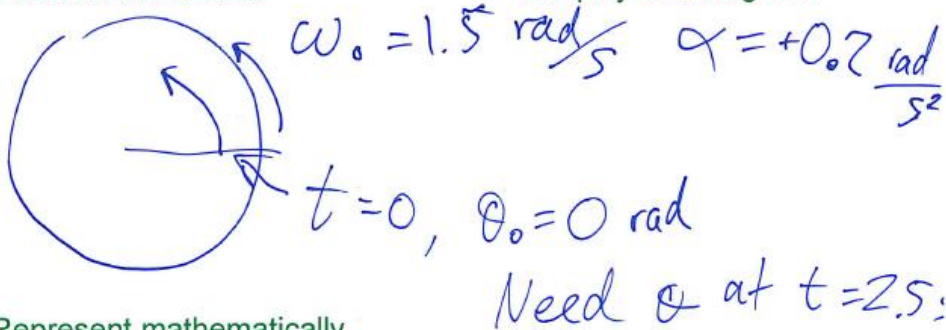 ω₀ = 1.5 rad/s α = +0.2 rad/s²
t = 0, θ₀ = 0 rad
Need θ at t = 2.5
Represent mathematically